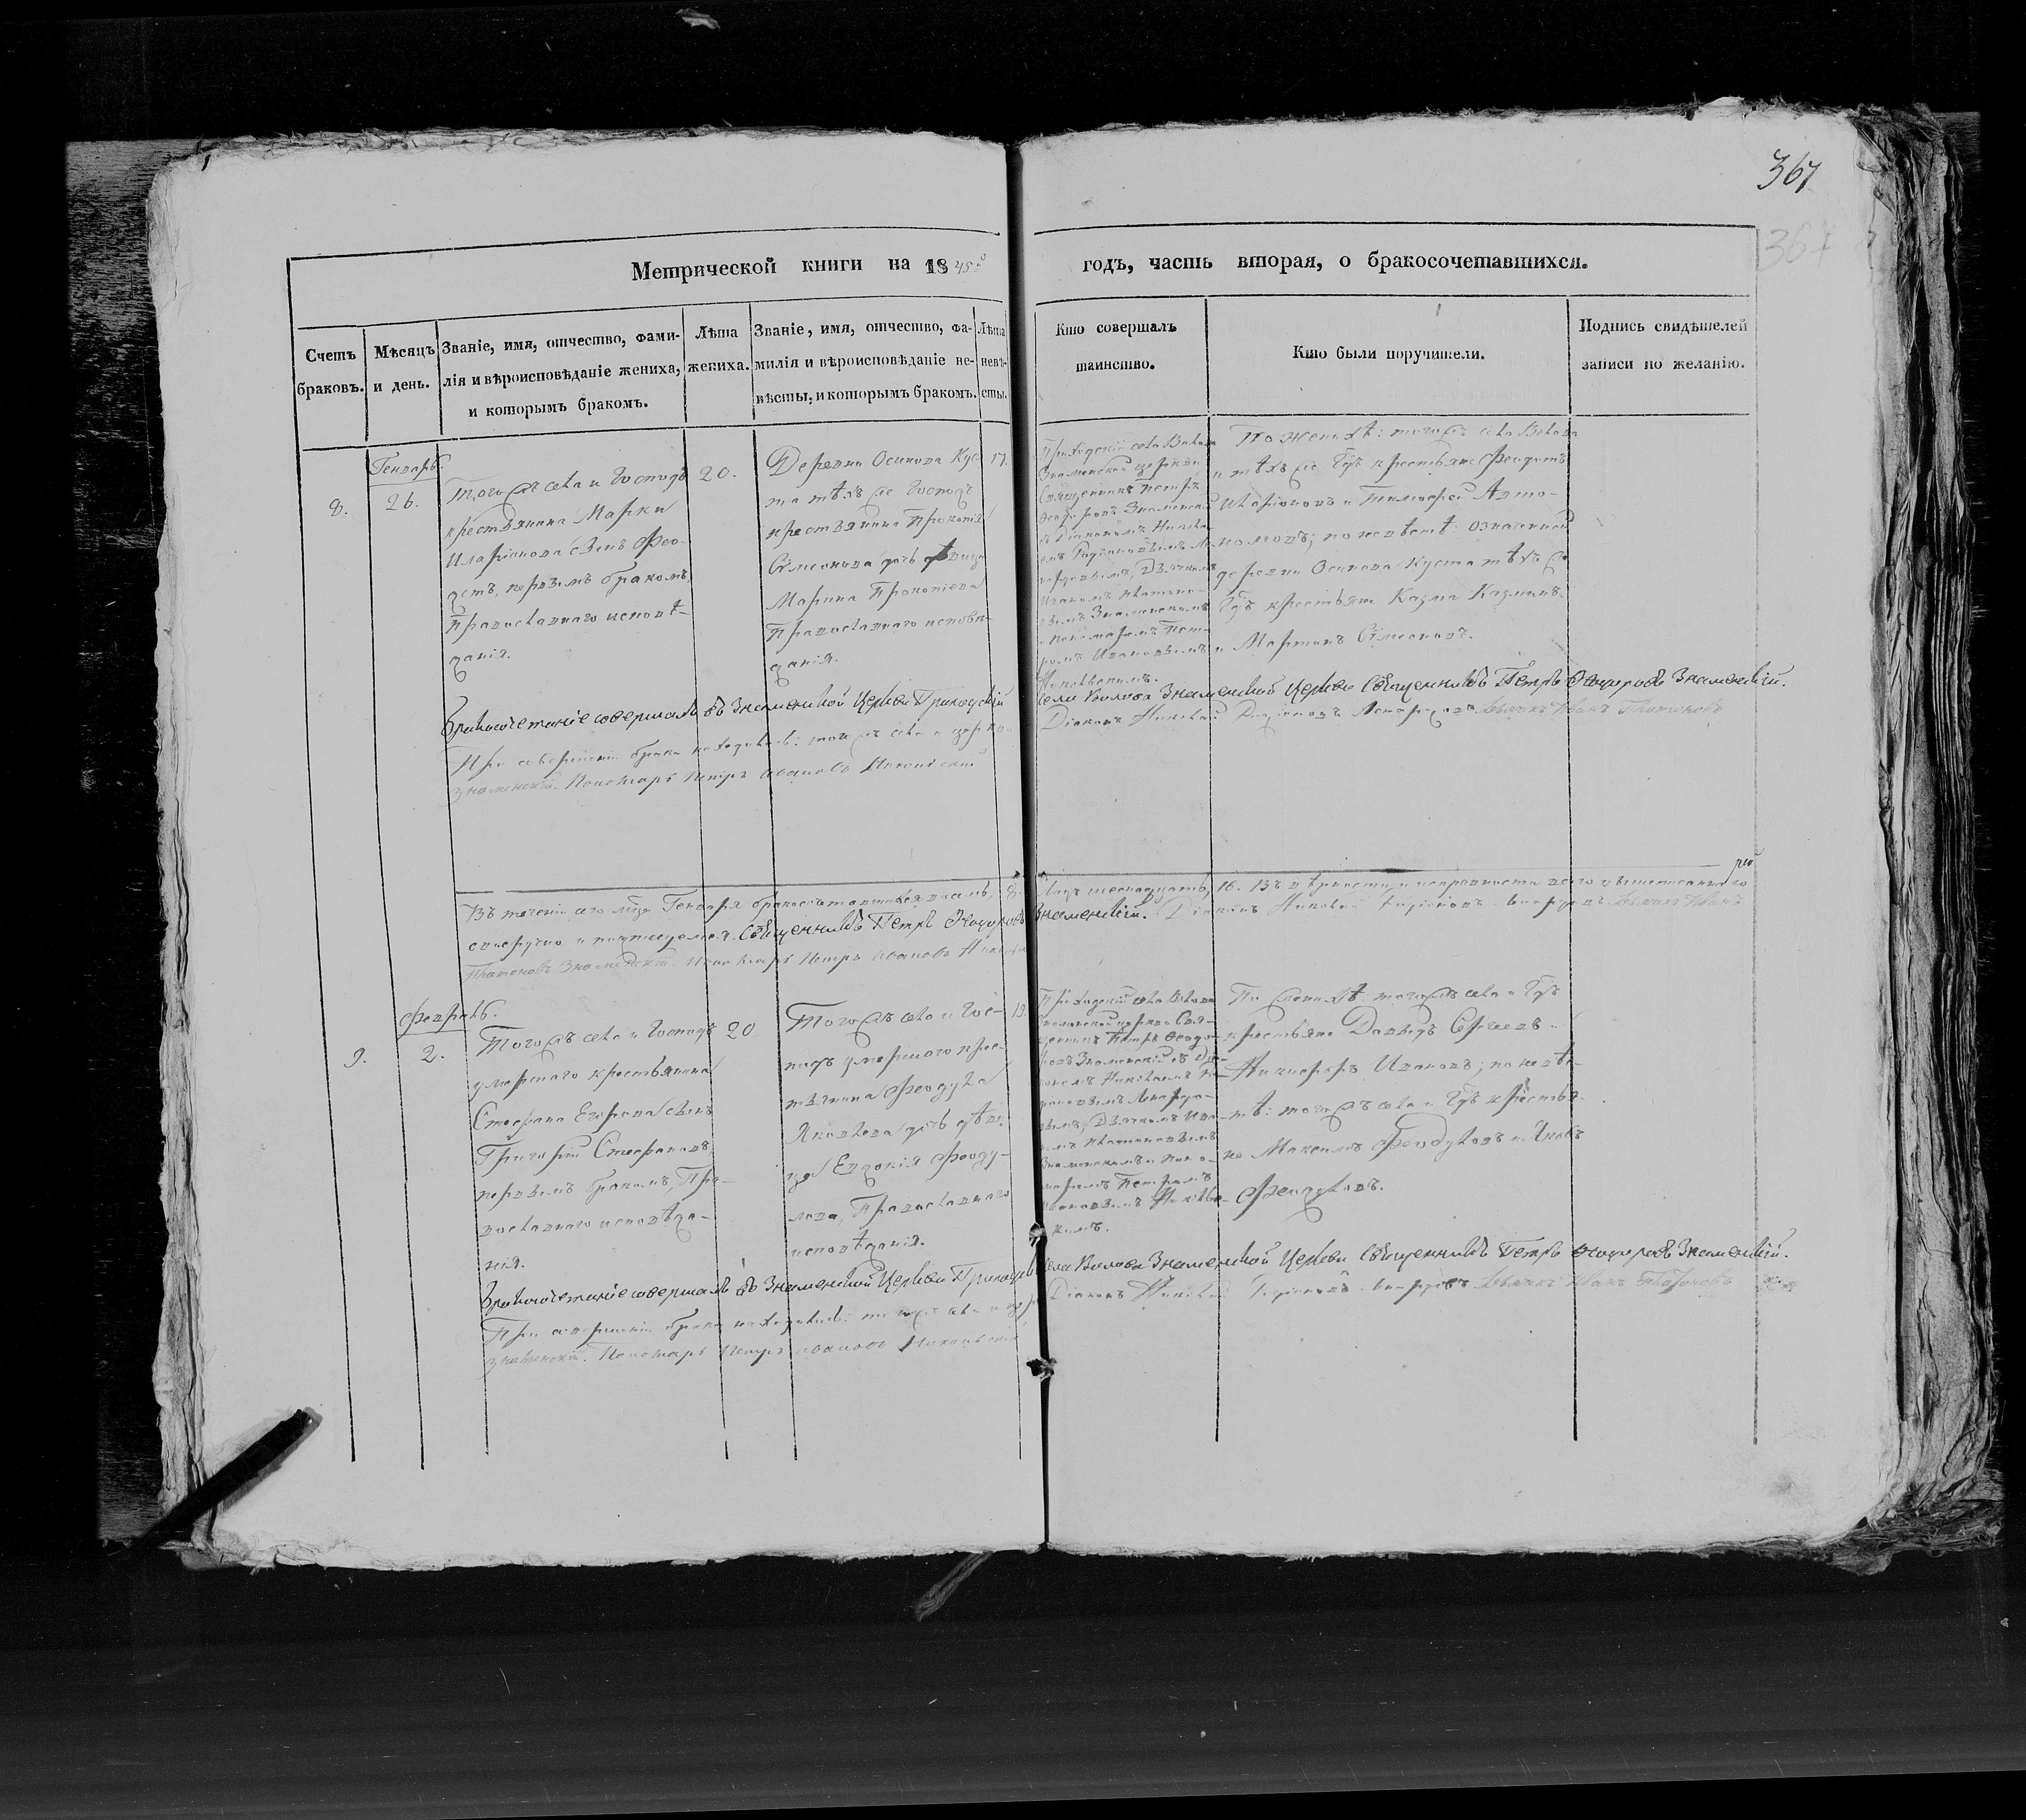 367
367
Метрической книги на 1845 годъ, часть вторая, о бракосочетавшихся.
Счетъ браковъ.
Мѣсяцъ и день.
Званіе, имя, отчество, фами-
лія и вѣроисповѣданіе жениха,
и которымъ бракомъ.
Лѣта
жениха.
Званіе, имя, отчество, фа-
милія и вѣроисповѣданіе не-
вѣсты, и которымъ бракомъ.
Лѣта
невѣ-
сты.
Кто совершалъ
таинство.
Кто были поручители.
Подпись свидѣтелей
записи по желанію.
8.
Генварь.
26.
Тогожъ села и Господъ
крестьянина Марки
Иларіонова сынъ Фео-
дотъ, первымъ бракомъ,
Православнаго исповѣ-
данія.
20.
Деревни Осинова Кус-
та тѣхъ же Господъ
крестьянина Прокопія
Симеонова дочь дѣвица
Марина Прокопіева
Православнаго исповѣ-
данія.
17.
Приходскій села Волова
Знаменской церкви
Священникъ Петръ
Ѳеодоровъ Знаменскій
съ Діакономъ Никола-
емъ Родіоновымъ
Дьячкомъ
Иваномъ Платоно-
вымъ Знаменскимъ
и Пономаремъ Пет-
ромъ Ивановымъ
По женихѣ: тогожъ села Волова
и тѣхъ же Гдъ крестьяне Феодотъ
Иларіоновъ и Тимофей Авто-
номовъ; по невѣстѣ: означенной
деревни Осинова Куста тѣхъ же
Гдъ крестьяне Казма Казминъ
и Мартинъ Симеоновъ.
Бракосочетаніе совершалъ въ Знаменской Церкви Приходскій села Волова Знаменской Церкви Священникъ Петръ Ѳеодоровъ Знаменскій.
При совершеніи брака находились: тогожъ села и церкви Діаконъ Николай Родіоновъ Дьячокъ Иванъ Платоновъ
Знаменскій. Пономарь Петръ Ивановъ
Въ теченіи сего мца Генваря бракосочетавшихся восемь, 8. Лицъ шестнадцать, 16. Въ вѣрности и исправности всего вышеписаннаго
своеручно и подписуемся. Священникъ Петръ Ѳеодоровъ Знаменскій. Діаконъ Николай Родіоновъ Дьячокъ Иванъ
Платоновъ Знаменскій. Пономарь Петръ Ивановъ
9.
Февраль.
2.
Тогожъ села и Господъ
умершаго крестьянина
Стефана Егорова сынъ
Григорій Стефановъ
первымъ бракомъ, Пра-
вославнаго исповѣда-
нія.
20
Тогожъ села и Гос-
подъ умершаго крес-
тьянина Феодула
Яковлева дочь дѣви-
ца Евдокія Феоду-
лова, Православнаго
исповѣданія.
19.
Приходскій села Волова
Знаменской церкви Свя-
щенникъ Петръ Ѳеодо-
ровъ Знаменскій съ Діа-
кономъ Николаемъ Ро-
діоновымъ
Дьячкомъ Ива-
номъ Платоновымъ
Знаменскимъ и Поно-
маремъ Петромъ
Ивановымъ
По женихѣ: тогожъ села и Гдъ
крестьяне Давыдъ Сергеевъ и
Никифоръ Ивановъ; по невѣс-
тѣ: тогожъ села и Гдъ крестья-
не Максимъ Феодуловъ и Яковъ
Феодуловъ.
Бракосочетаніе совершалъ въ Знаменской Церкви Приходскій села Волова Знаменской Церкви Священникъ Петръ Ѳеодоровъ Знаменскій.
При совершеніи брака находились: тогожъ села и церкви Діаконъ Николай Родіоновъ Дьячокъ Иванъ Платоновъ
Знаменскій. Пономарь Петръ Ивановъ